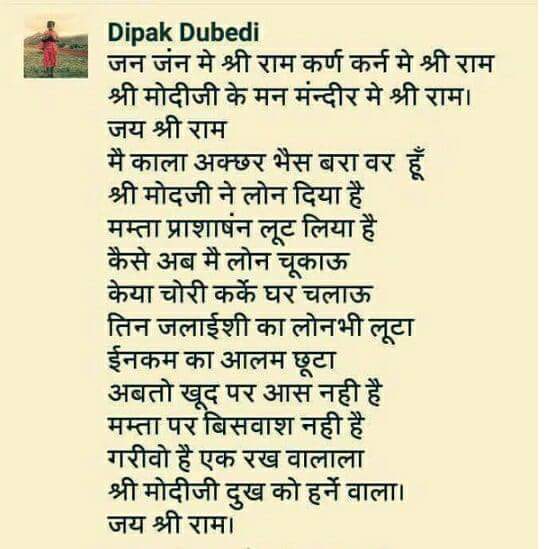 Dipak Dubedi
जन जंन मे श्री राम कर्ण कर्न मे श्री राम
श्री मोदीजी के मन मंन्दीर मे श्री राम।
जय श्री राम
मै काला अक्छर भैस बरा वर हूँ
श्री मोदजी ने लोन दिया है
मम्ता प्राशाषंन लूट लिया है
कैसे अब मै लोन चूकाऊ
केया चोरी कर्के घर चलाऊ
तिन जलाईशी का लोनभी लूटा
ईनकम का आलम छूटा
अबतो खूद पर आस नही है
मम्ता पर बिसवाश नही है
गरीवो है एक रख वालाला
श्री मोदीजी दुख को हर्ने वाला।
जय श्री राम।